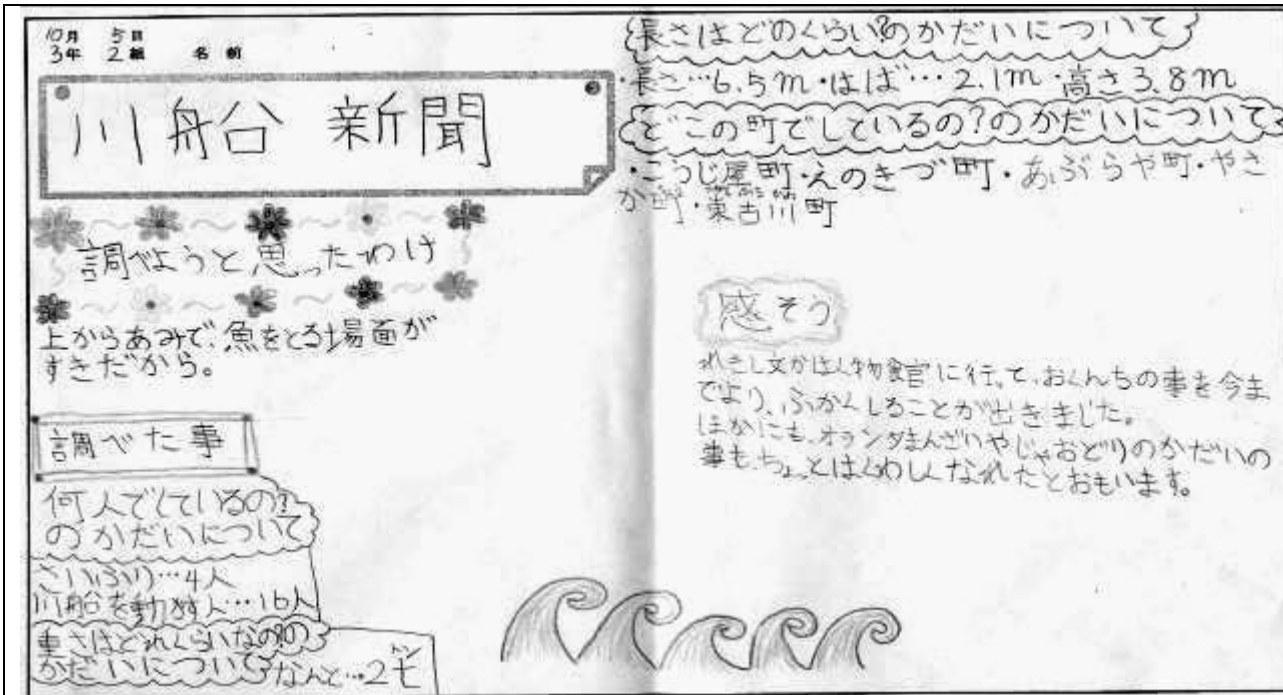 10月 5日
3年 2組 名前
川船台 新聞
調べようと思ったわけ
上からあみで、魚をとる場面が
すきだから。
調べた事
何人でしているの?
のかだいについて
さいふり…4人
川船を動かす人…16人
重さはどれくらいなの?の
かだいについて
なんと…2トン
長さはどのくらい?のかだいについて
・長さ…6.5m・はば…2.1m・高さ3.8m
どこの町でしているの?のかだいについて
・こうじ屋町・えのきづ町・あぶらや町・やさ
か町・東古川町
感そう
れきし文かはく物館に行って、おくんちの事を今ま
でより、ふかくしることが出きました。
ほかにも、オランダまんざいやじゃおどりのかだいの
事も、ちょっとはくわしくなれたとおもいます。